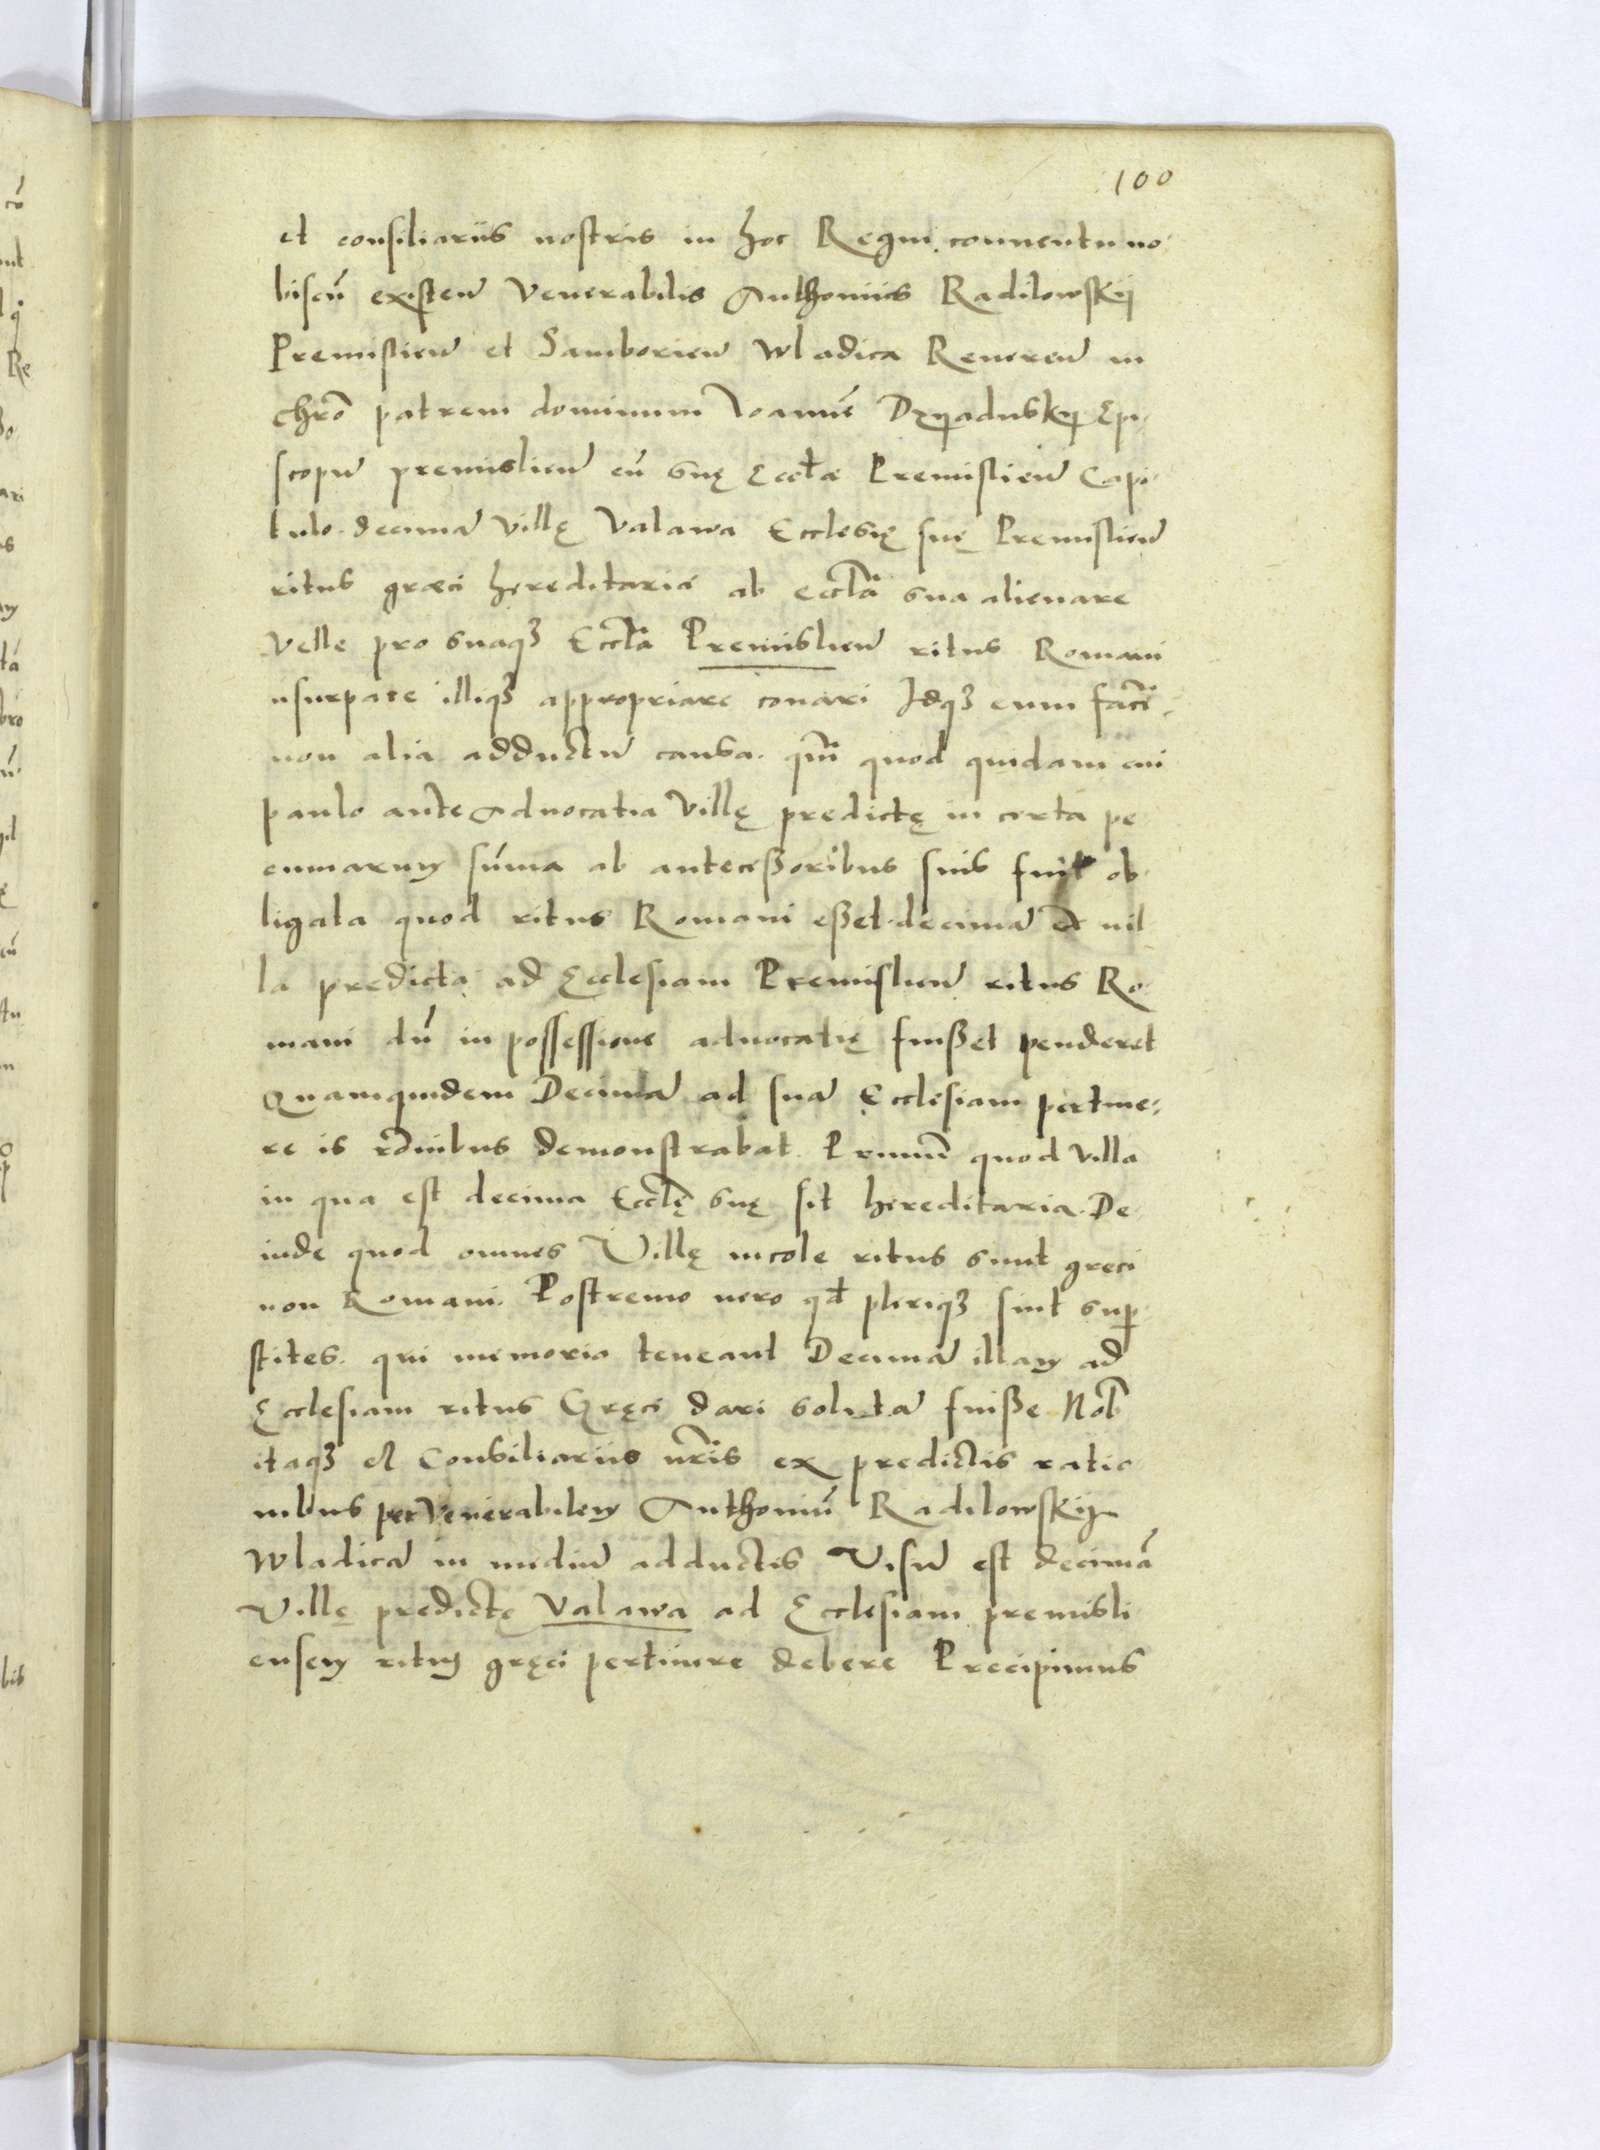 100
et consiliariis nostris in hoc Regni conuentu no
biscū existeñ Venerabilis Anthonius Radilowskij
Premislieñ et Samborieñ Wladica Reuereñ in
chro patrem dominum Ioanne Dzyaduskij Epi
scopū premislieñ cū suę Eccl̄ae Premislieñ Capi
tulo decimā villę Valawa Ecclesię suę Premislieñ
ritus græci hereditarie ab eccl̄ia sua alienare
velle pro suaqȝ Eccl̄ia Premislieñ ritus Romani
usurpare illiqȝ appropriare conari Idqȝ eum facē
non alia adductū causa qm̄ quod quidam cui
paulo ante Aduocatia villę predictę in certa pe
cuniarum sūma ab antecessoribus suis fuit ob
ligata quod ritus Romani esset decimā ex uil
la predicta ad Ecclesiam Premislieñ ritus Ro
mani dū in possessione aduocatię fuisset penderet
Quamquidem Decimā ad suā Ecclesiam pertine
re is rōnibus demonstrabat Primū quod villa
in qua est decima Eccl̄ię suę sit hereditaria De
inde quod omnes Villę incole ritus sunt greci
non Romani Postremo uero qd̄ pleriqȝ sint sup̄
stites qui memoria teneant Decimā illam ad
Ecclesiam ritus Gręci dari solitā fuisse Nob̄
itaqȝ et Consiliariis nr̄is ex predictis ratio
nibus per Venerabilem Anthoniū Radilowskij
Wladicā in mediū adductis Visū est decimā
Villę predictę Valawa ad Ecclesiam premisli
ensem ritus gręci pertinere debere Precipimus